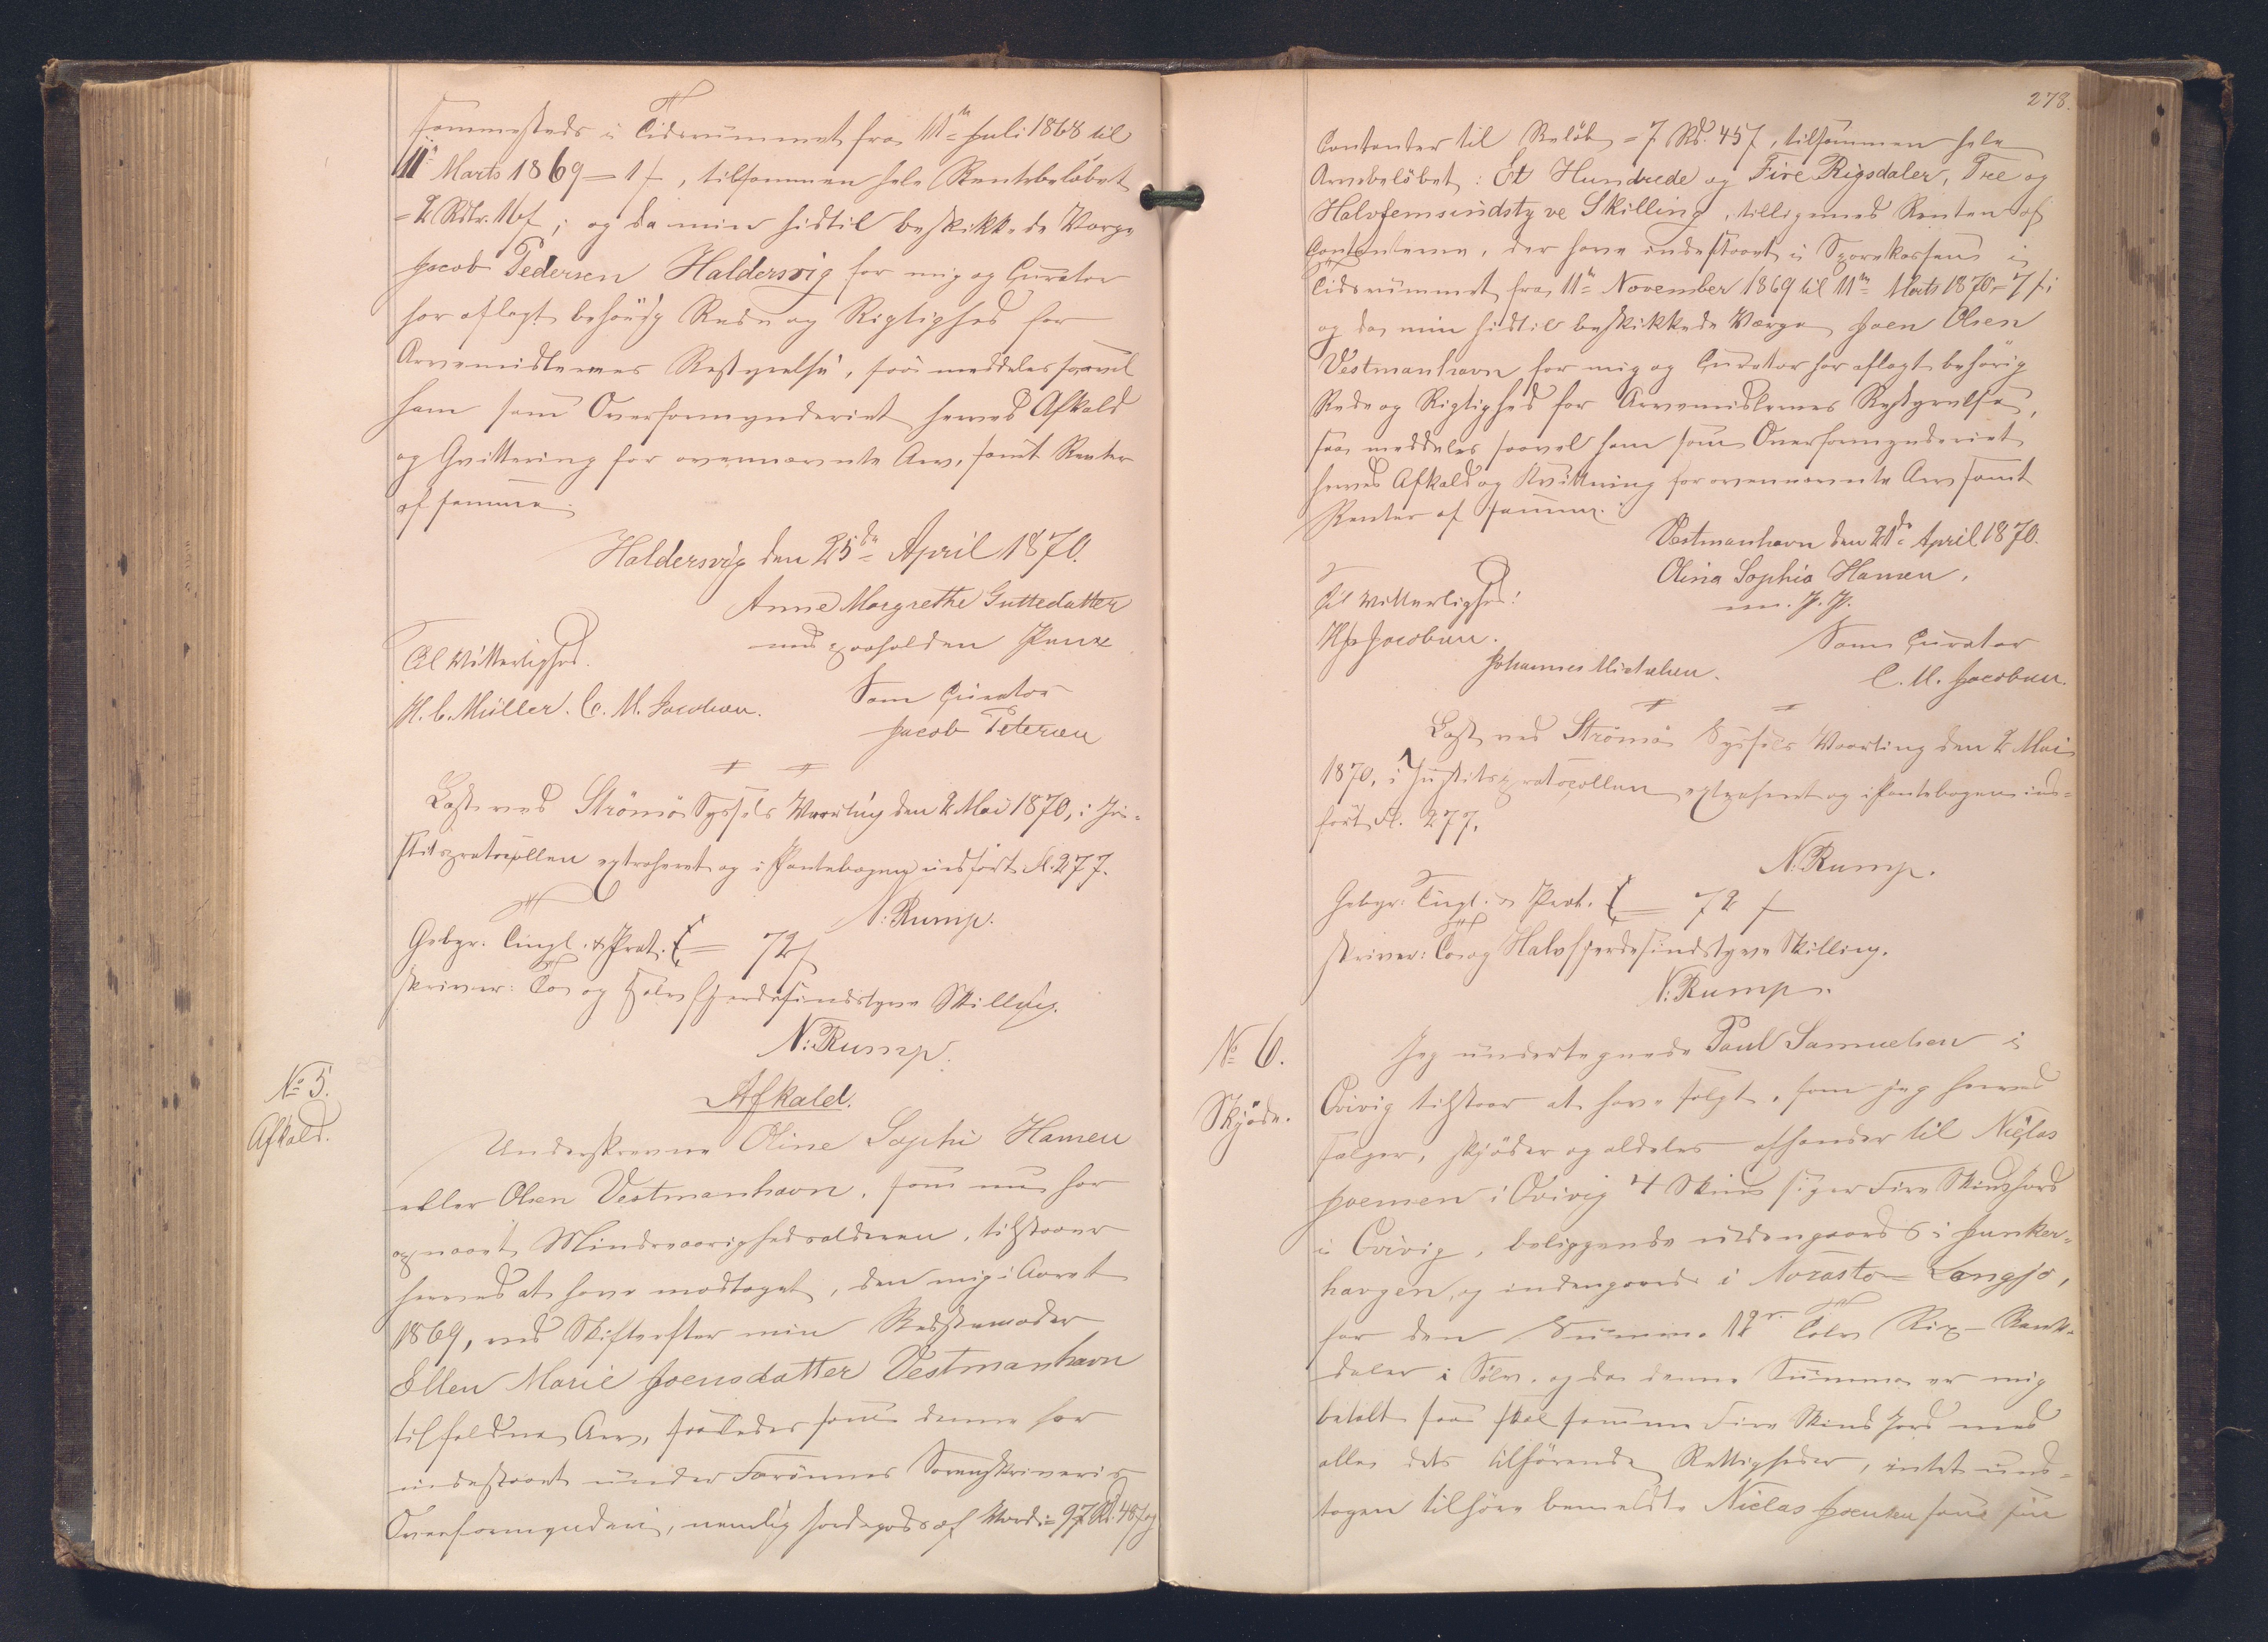 sammesteds i Tidsrummet fra 11te Juli 1868 til
11te Marts 1869 = 1 f, tilsammen hele Rentebeløbet
= 2 Rdlr. 16 f; og da min hidtil beskikkede Værge
Jacob Pedersen Haldersvig for mig og Curator
har aflagt behørig Rede og Rigtighed for
Arvemidlernes Bestyrelse, saa meddeles saavel
ham som Overformynderiet herved Afkald
og Qvittering for ovennævnte Arv, samt Renter
af samme.
Haldersvig den 25de April 1870.
Anne Margrethe Guttedatter
med paaholden Penn
Til Vitterlighed.
H. C. Müller. C. M. Jacobsen.
Som Curator
Jacob Petersen
Læst ved Strömö Syssels Vaarting den 2 Mai 1870, i Ju-
stitsprotocollen extraheret og i Pantebogen indført fl. 277.
N: Rump.
Gebyr. Tingl. & Prot. = 72 f
skriver: To og Halvfjerdesindstyve Skilling.
N: Rump.
No 5.
Afkald.
Afkald.
Underskrevne Oline Sophie Hansen
eller Olsen Vestmanhavn, som nu har
opnaaet Mindreaarighedsalderen, tilstaaer
herved at have modtaget, den mig i Aaret
1869, ved Skifte efter min Bedstemoder
Ellen Marie Joensdatter Vestmanhavn
tilfaldne Arv, saaledes som denne har
indestaaet under Færøernes Sorenskriveris
Overformynderi, nemlig Jordegods af Værdi = 97 Rd. 48 f og
278.
Contanter til Beløb = 7 Rd. 45 f, tilsammen hele
Arvebeløbet: Et Hundrede og Fire Rigsdaler, Tre og
Halvfemsindstyve Skilling, tilligemed Renten af
Contanterne, der have indestaaet i Sparekassen i
Tidsrummet fra 11te November 1869 til 11te Marts 1870 = 7 f;
og da min hidtil beskikkede Værge Joen Olsen
Vestmanhavn for mig og Curator har aflagt behørig
Rede og Rigtighed for Arvemidlernes Bestyrelse,
saa meddeles saavel ham som Overformynderiet
herved Afkald og Kvittering for ovennævnte Arv samt
Renter af samme.
Vestmanhavn den 21de April 1870.
Olina Sophia Hansen.
m. p. P.
Til Vitterlighed!
Som Curator
C. M. Jacobsen.
Johannes Michelsen.
Læst ved Strömö Syssels Vaarting den 2 Mai
1870, i Justitsprotocollen extraheret og i Pantebogen ind-
ført fl. 277.
N: Rump.
Gebyr: Tingl. & Prot. = 72 f
skriver: To og Halvfjerdesindstyve Skilling.
N: Rump.
No 6.
Skjøde.
Jeg undertegnede Paul Samuelsen i
Qvivig tilstaar at have solgt, som jeg herved
sælger, skjøder og aldeles afhænder til Niclas
Joensen i Qvivig 4 Skind siger Fire Skind Jord
i Qvivig, beliggende udengaards i Junker-
haugen, og indengaards i Norasto = Langjo,
for den Summa 12 r. Tolv Rix-Bank-
daler i Sølv. og da denne Summa er mig
betalt saa skal samme Fire Skind Jord med
alle dets tilhørende Rettigheder, intet und-
tagen tilhøre bemeldte Niclas Joensen som sin